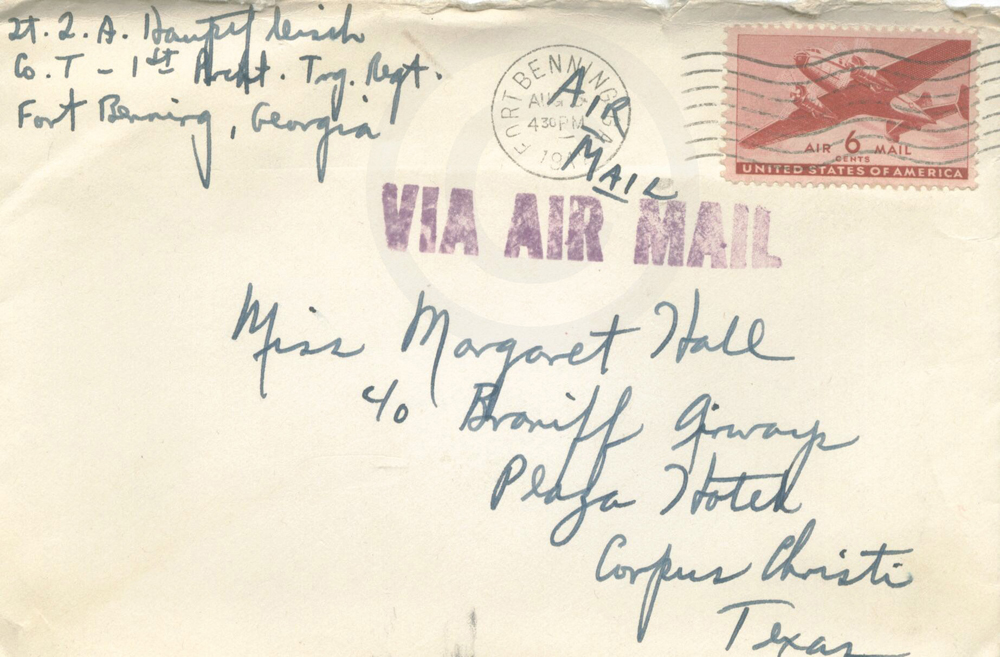 Lt. L. A.
Co. T - 1st Prcht. Trg. Regt.
Fort Benning, Georgia
FORT BENNING GA.
AUG
430 PM
19
AIR
MAIL
AIR 6 MAIL
CENTS
UNITED STATES OF AMERICA
VIA AIR MAIL
Miss Margaret Hall
c/o Braniff Airways
Plaza Hotel
Corpus Christi
Texas